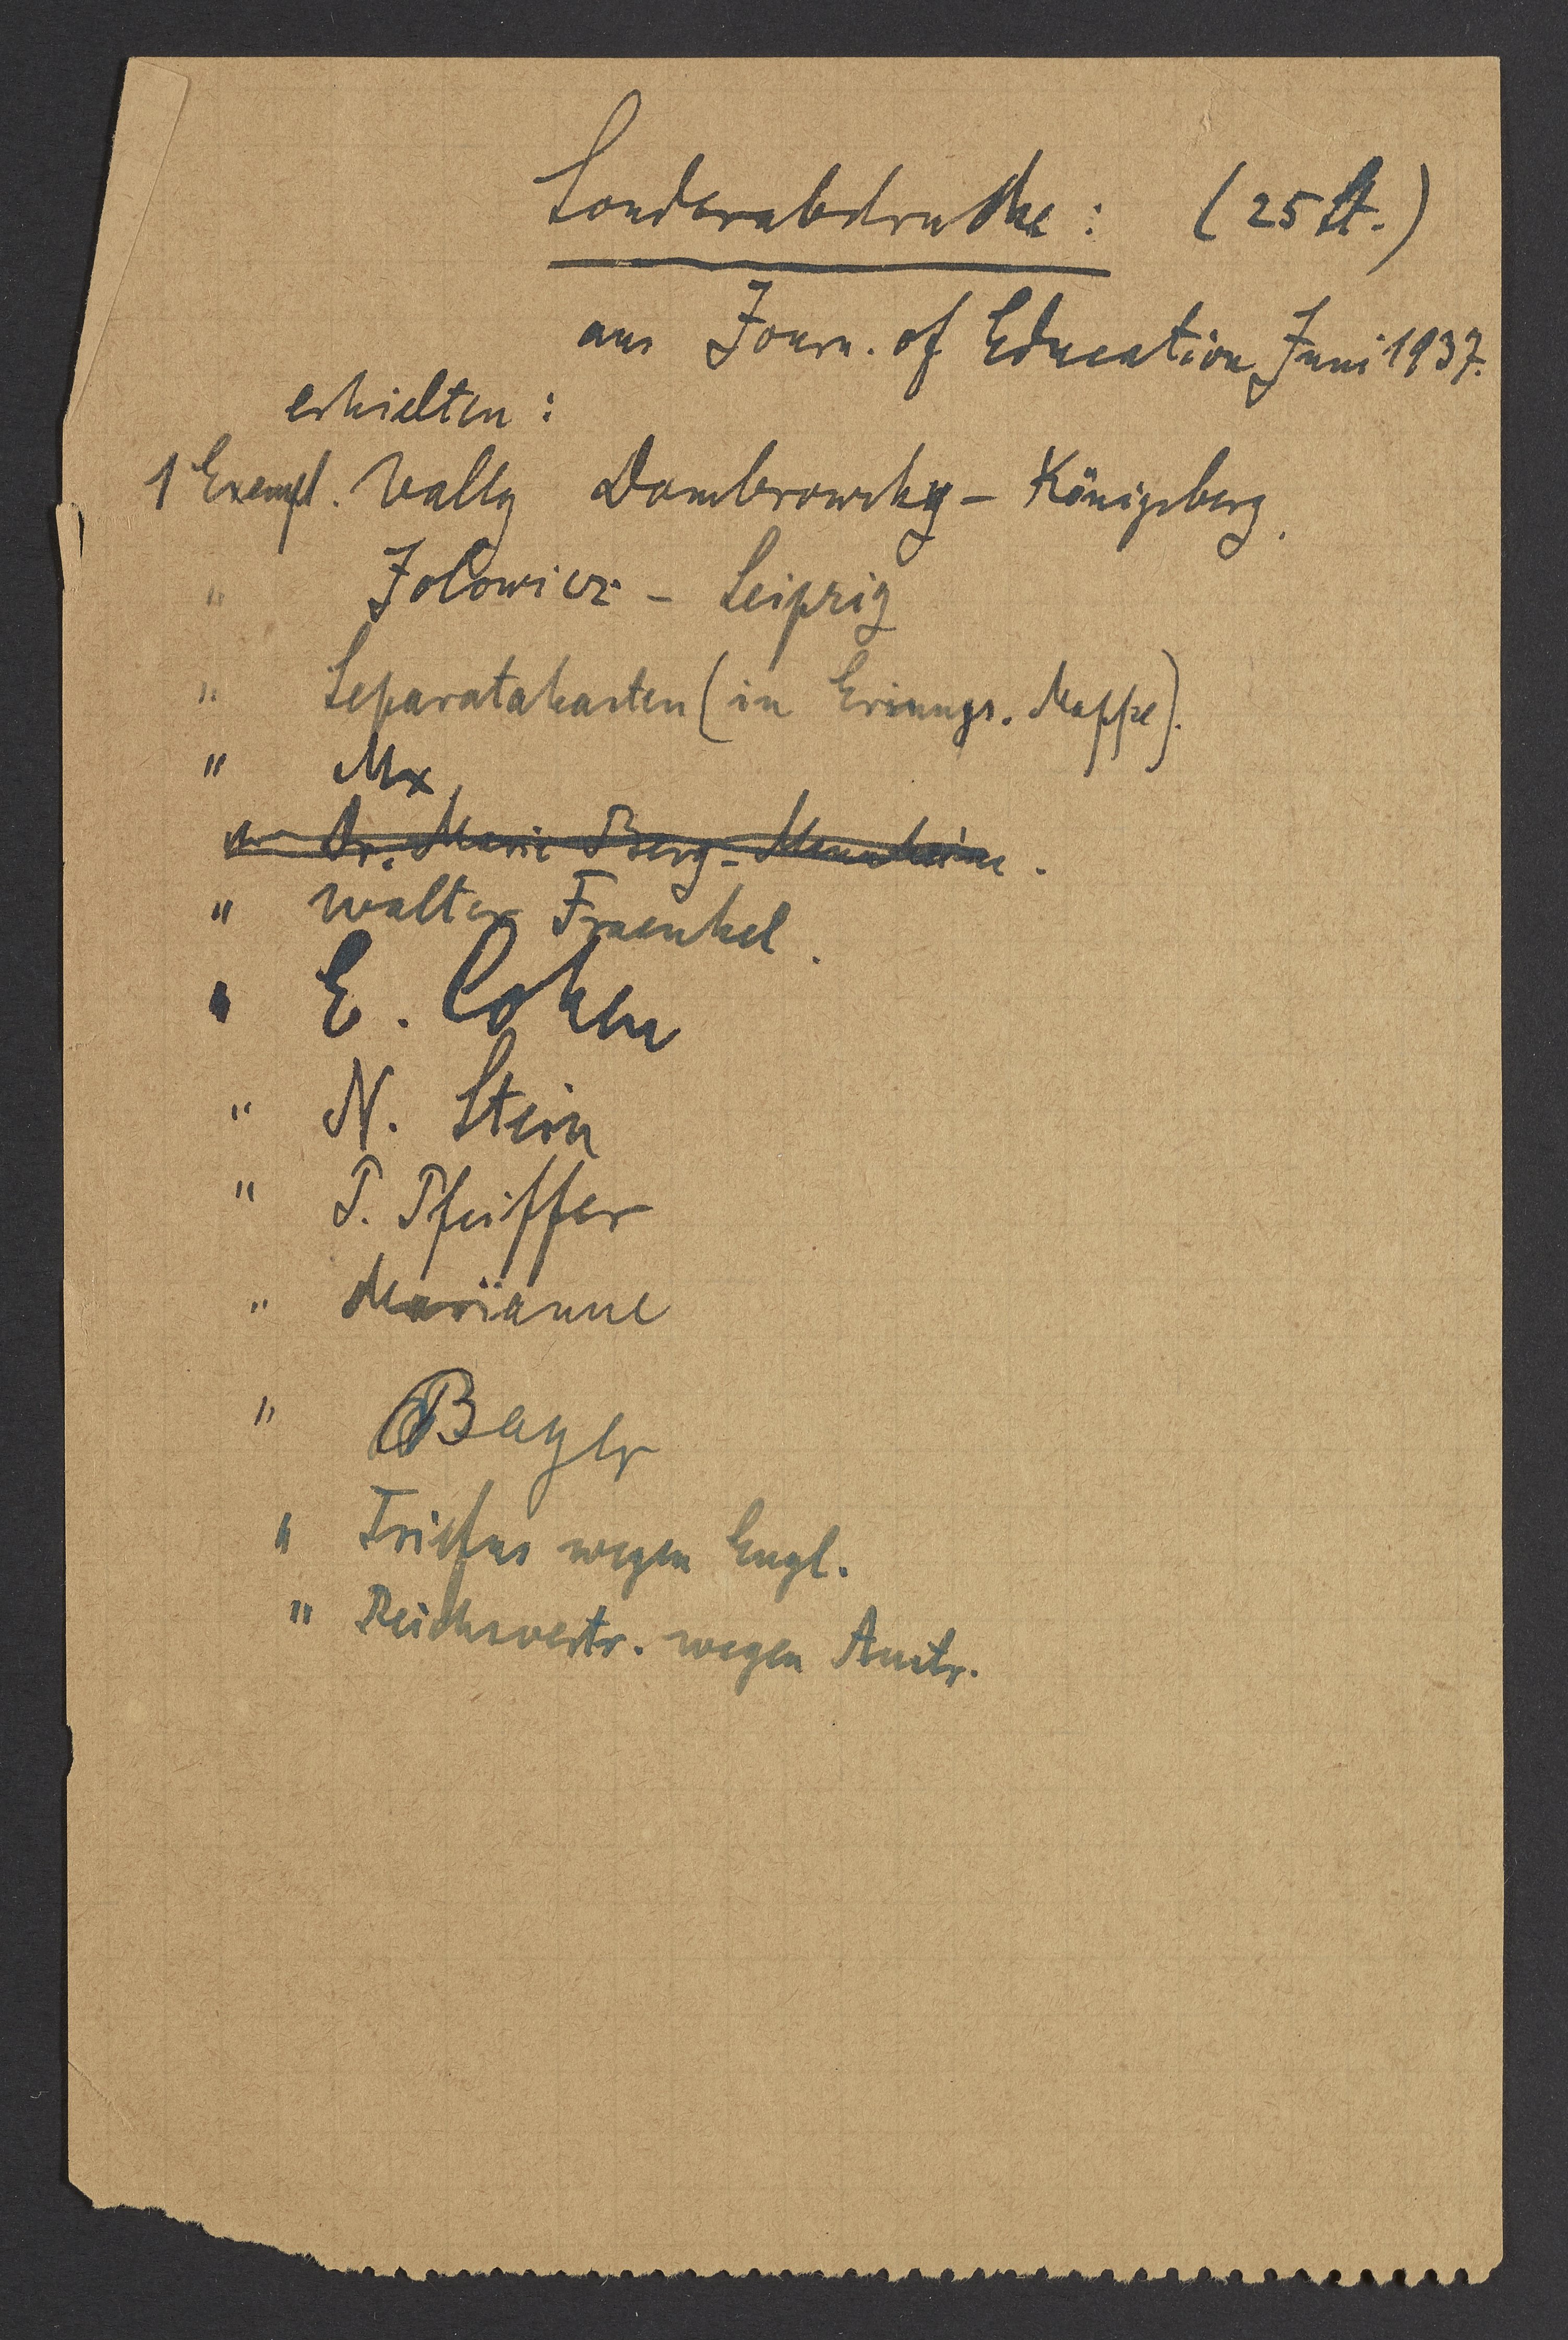 Sonderabdrucke: (25 St.)
aus Journ. of Education Juni 1937.
erhielten:
1 Exempl. Wally Dombrowsky - Königsberg.
" Jolowicz - Leipzig
" Separatakasten (in Erinngs. Mappe).
" Mx
" Dr. Marie Berg - Mannheim.
" Walter Fraenkel.
" E. Cohen
" N. Stein
" P. Pfeiffer
" Marianne
" Bayer
" Triefus wegen Engl.
" Reichsvertr. wegen Austr.